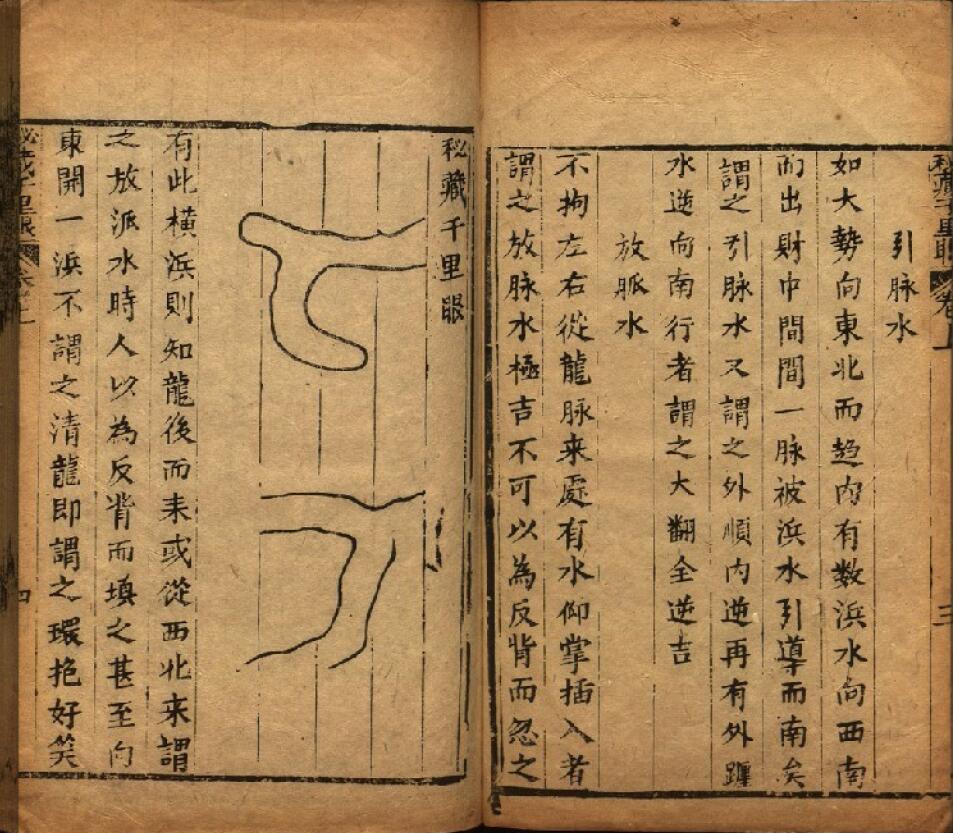 秘藏千里眼 卷上 三
引脉水
如大勢向東北而趋内有数浜水向西南
而出財中間間一脉被浜水引導而南矣
謂之引脉水又謂之外順内逆再有外躔
水逆向南行者謂之大翻全逆吉
放脈水
不拘左右從龍脉来處有水仰掌插入者
謂之放脉水極吉不可以為反背而忽之
秘藏千里眼
有此横浜則知龍後而来或從西北来謂
之放派水時人以為反背而填之甚至向
東開一浜不謂之清龍即謂之環抱好笑
四